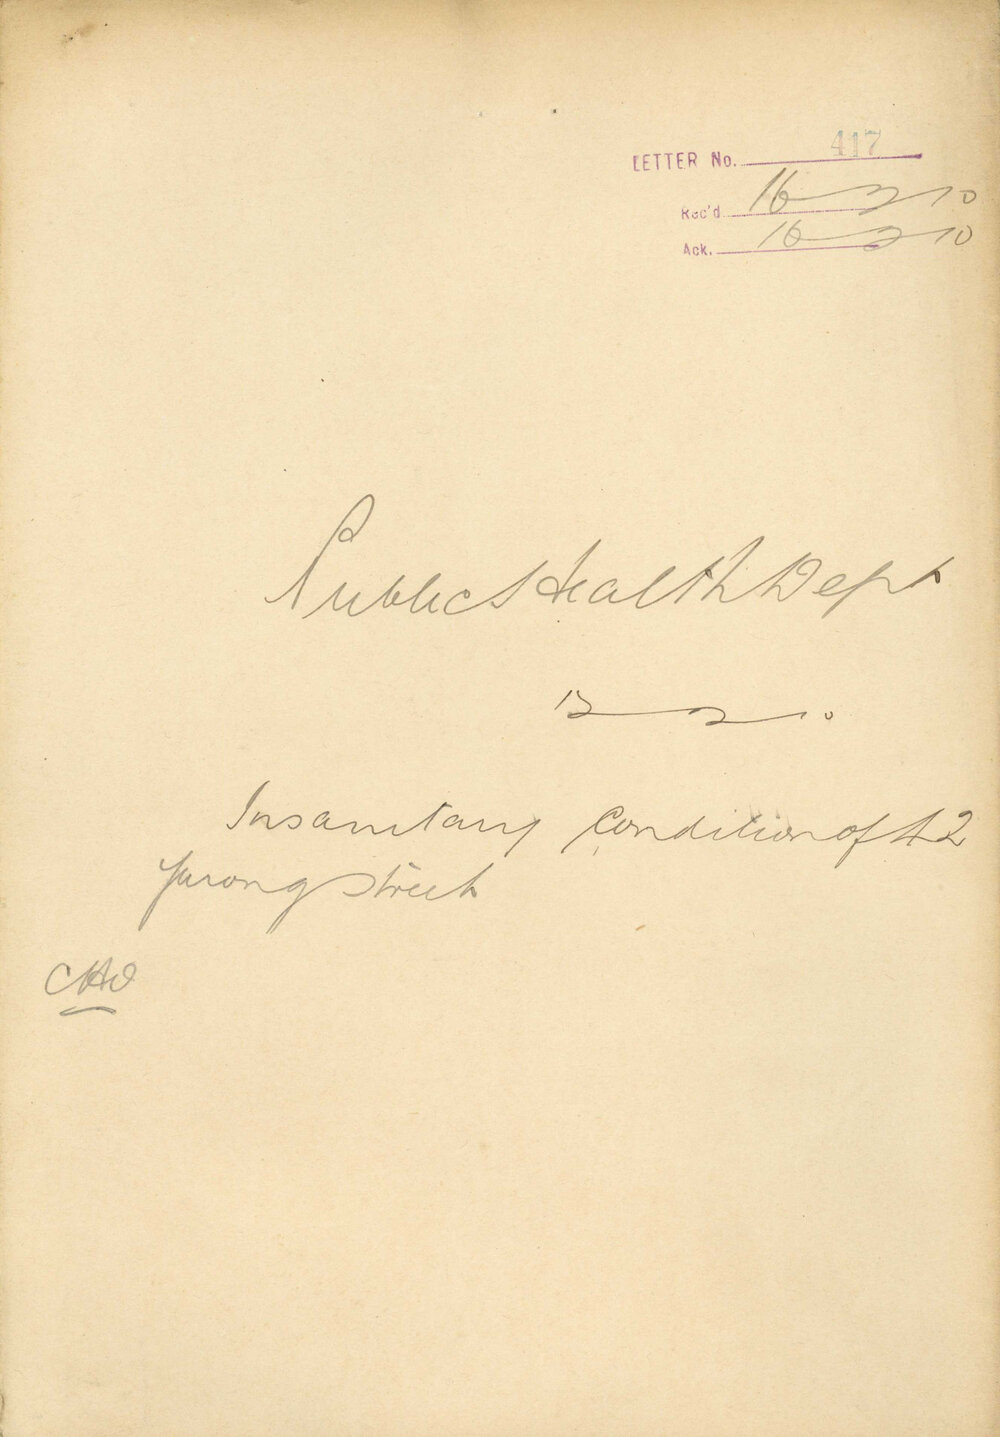 LETTER No. 417
Rec'd 16-2-10
Ack. 16-2-10
Public Health Dept
12-2-10
Insanitary Condition of 42
Yurong Street
CHO